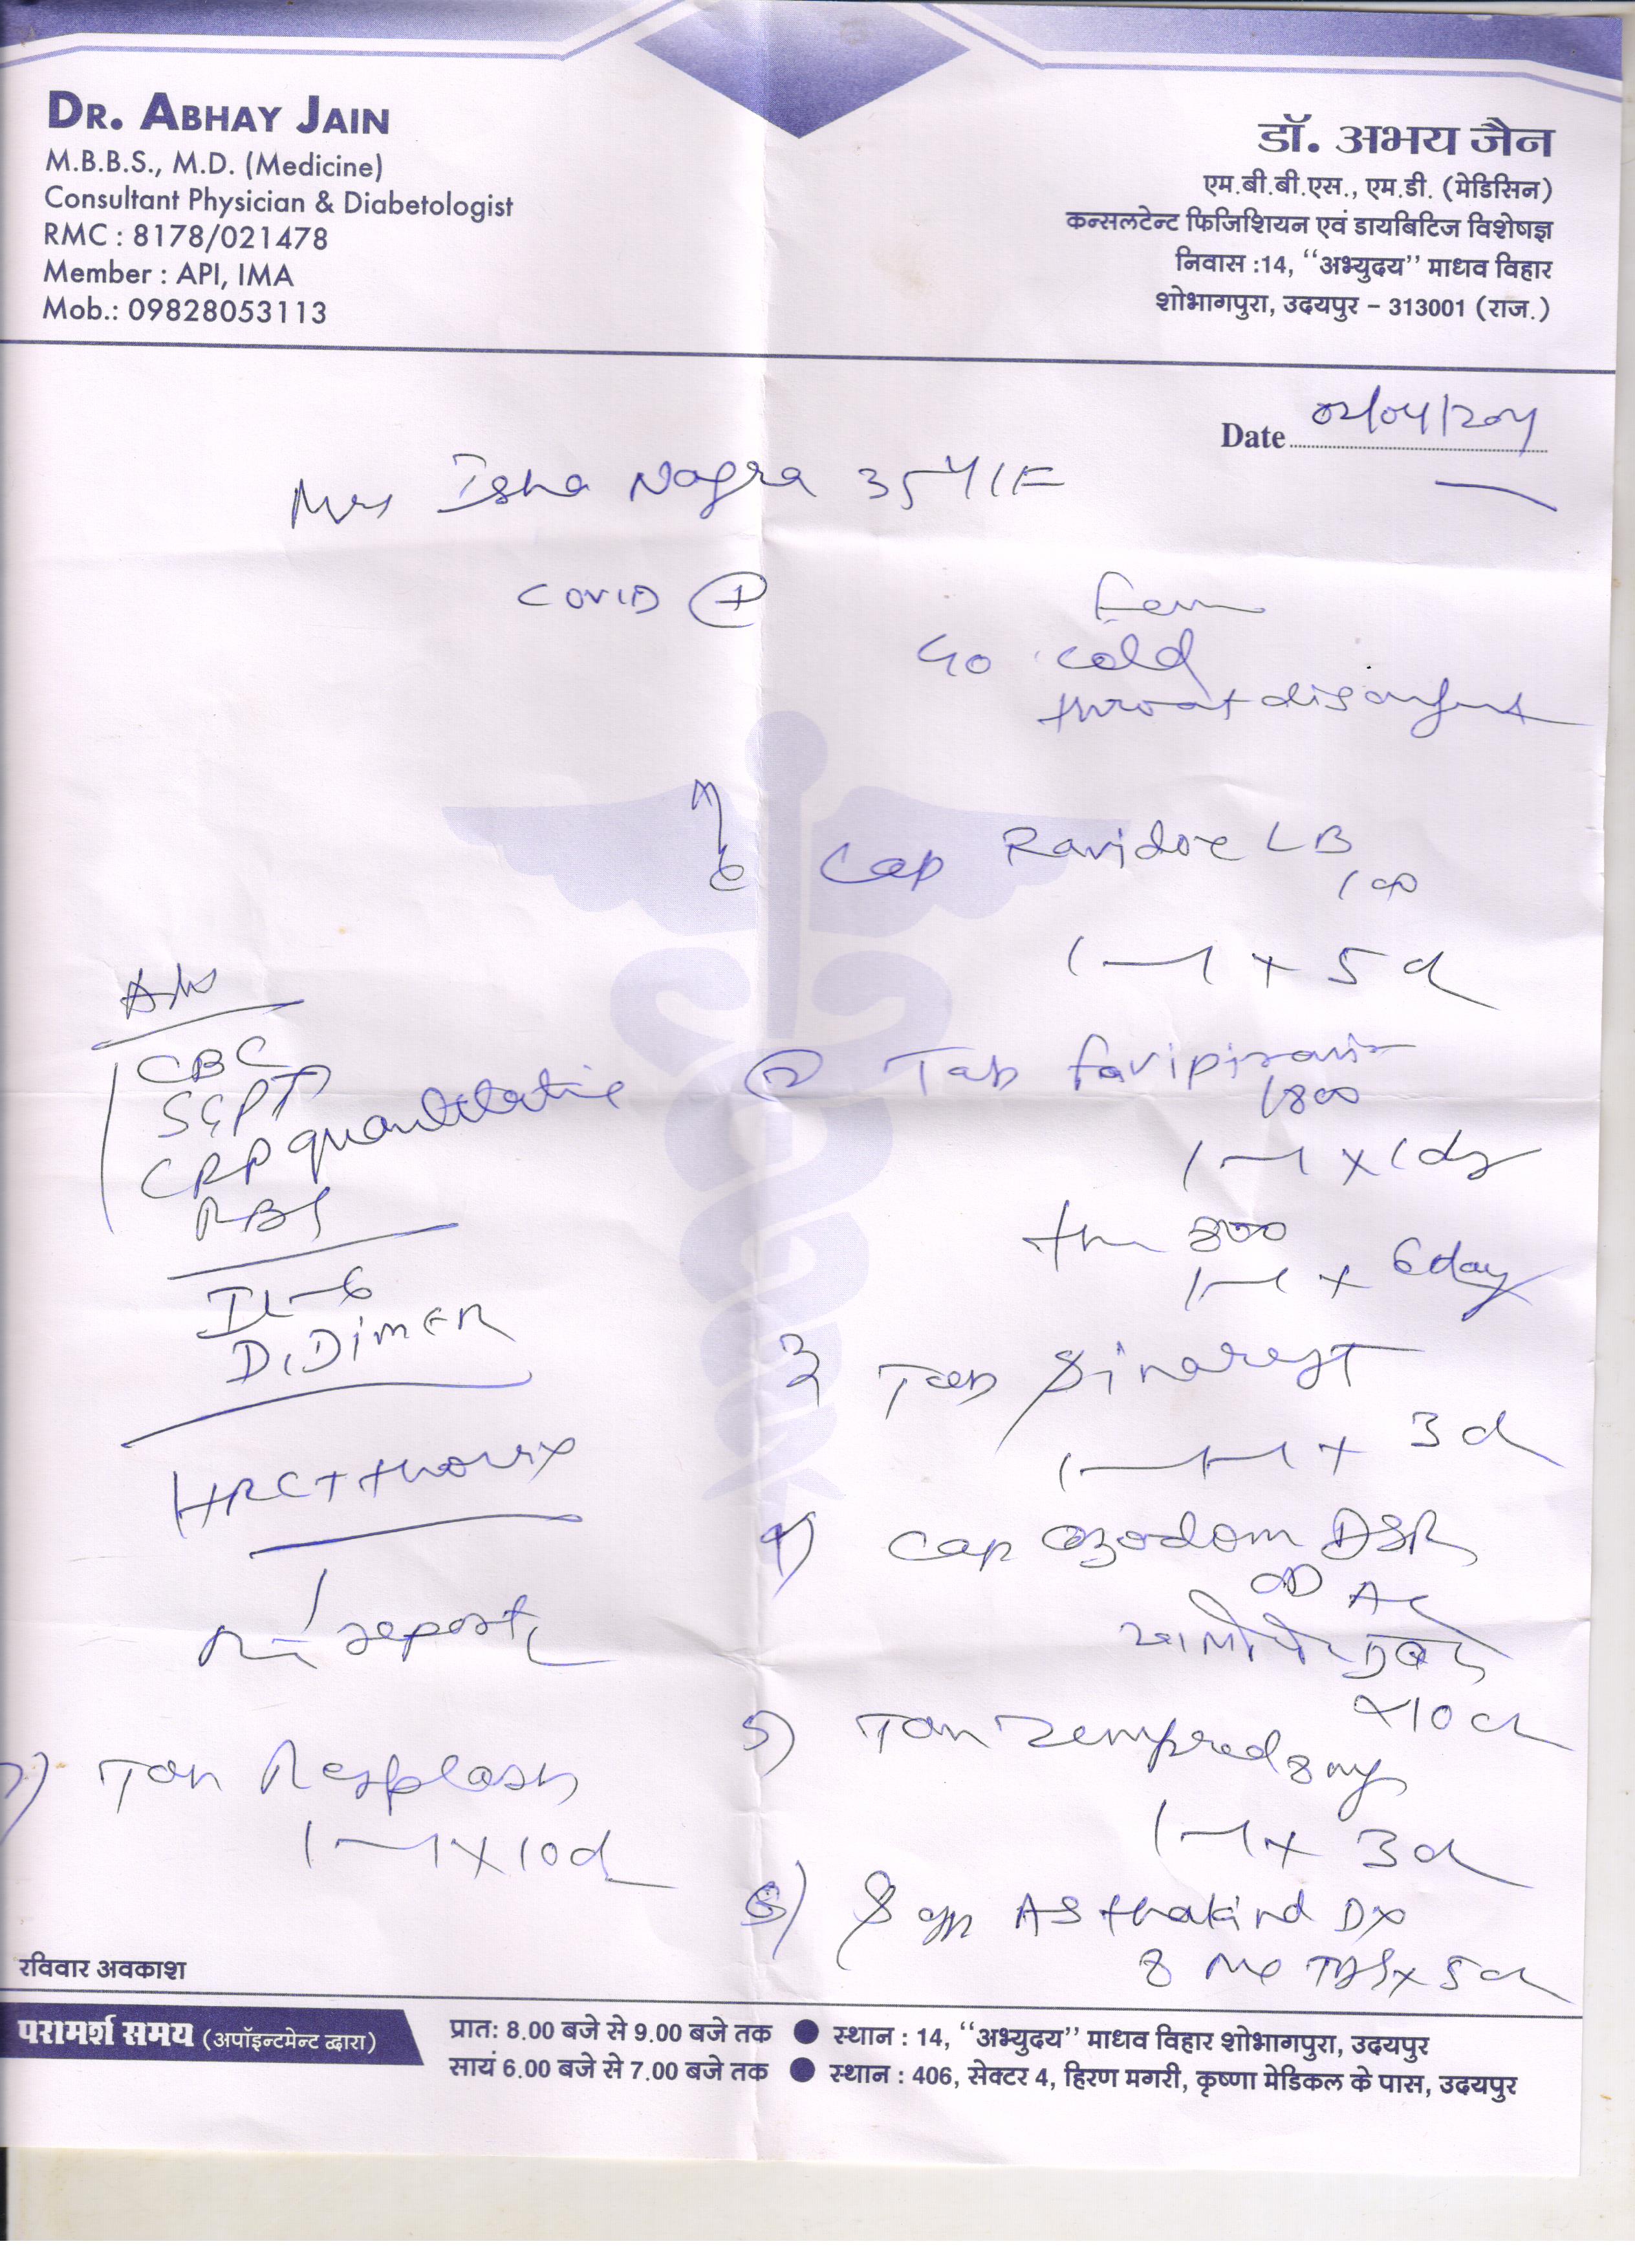 DR. ABHAY JAIN
M.B.B.S., M.D. (Medicine)
Consultant Physician & Diabetologist
RMC : 8178/021478
Member : API, IMA
Mob.: 09828053113
डॉ. अभय जैन
एम.बी.बी.एस., एम.डी. (मेडिसिन)
कन्सलटेन्ट फिजिशियन एवं डायबिटिज विशेषज्ञ
निवास :14, ‘‘अभ्युदय’’ माधव विहार
शोभागपुरा, उदयपुर – 313001 (राज.)
Date
Mrs Isha Nagra 35Y/F
COVID ⊕
cold
throat discomfort
Cap LB
100
1—1 x 5d
Adv
CBC
SGPT
CRP quantitative
RBS
IL-6
D.Dimer
HRCT thorax
reports
② Tab favipiravir
1800
1—1 x 1day
then 800
1—1 x 6day
3 Tab Sinarest
1—1—1 x 3d
4) Cap DSR
OD AC
x10d
5) Tab Zempred 8mg
1—1 x 3d
6) Syp Asthakind DX
TDS x 5d
7) Tab Resplash
1—1 x 10d
रविवार अवकाश
परामर्श समय (अपॉइन्टमेन्ट द्वारा)
प्रातः 8.00 बजे से 9.00 बजे तक ● स्थान : 14, ‘‘अभ्युदय’’ माधव विहार शोभागपुरा, उदयपुर
सायं 6.00 बजे से 7.00 बजे तक ● स्थान : 406, सेक्टर 4, हिरण मगरी, कृष्णा मेडिकल के पास, उदयपुर